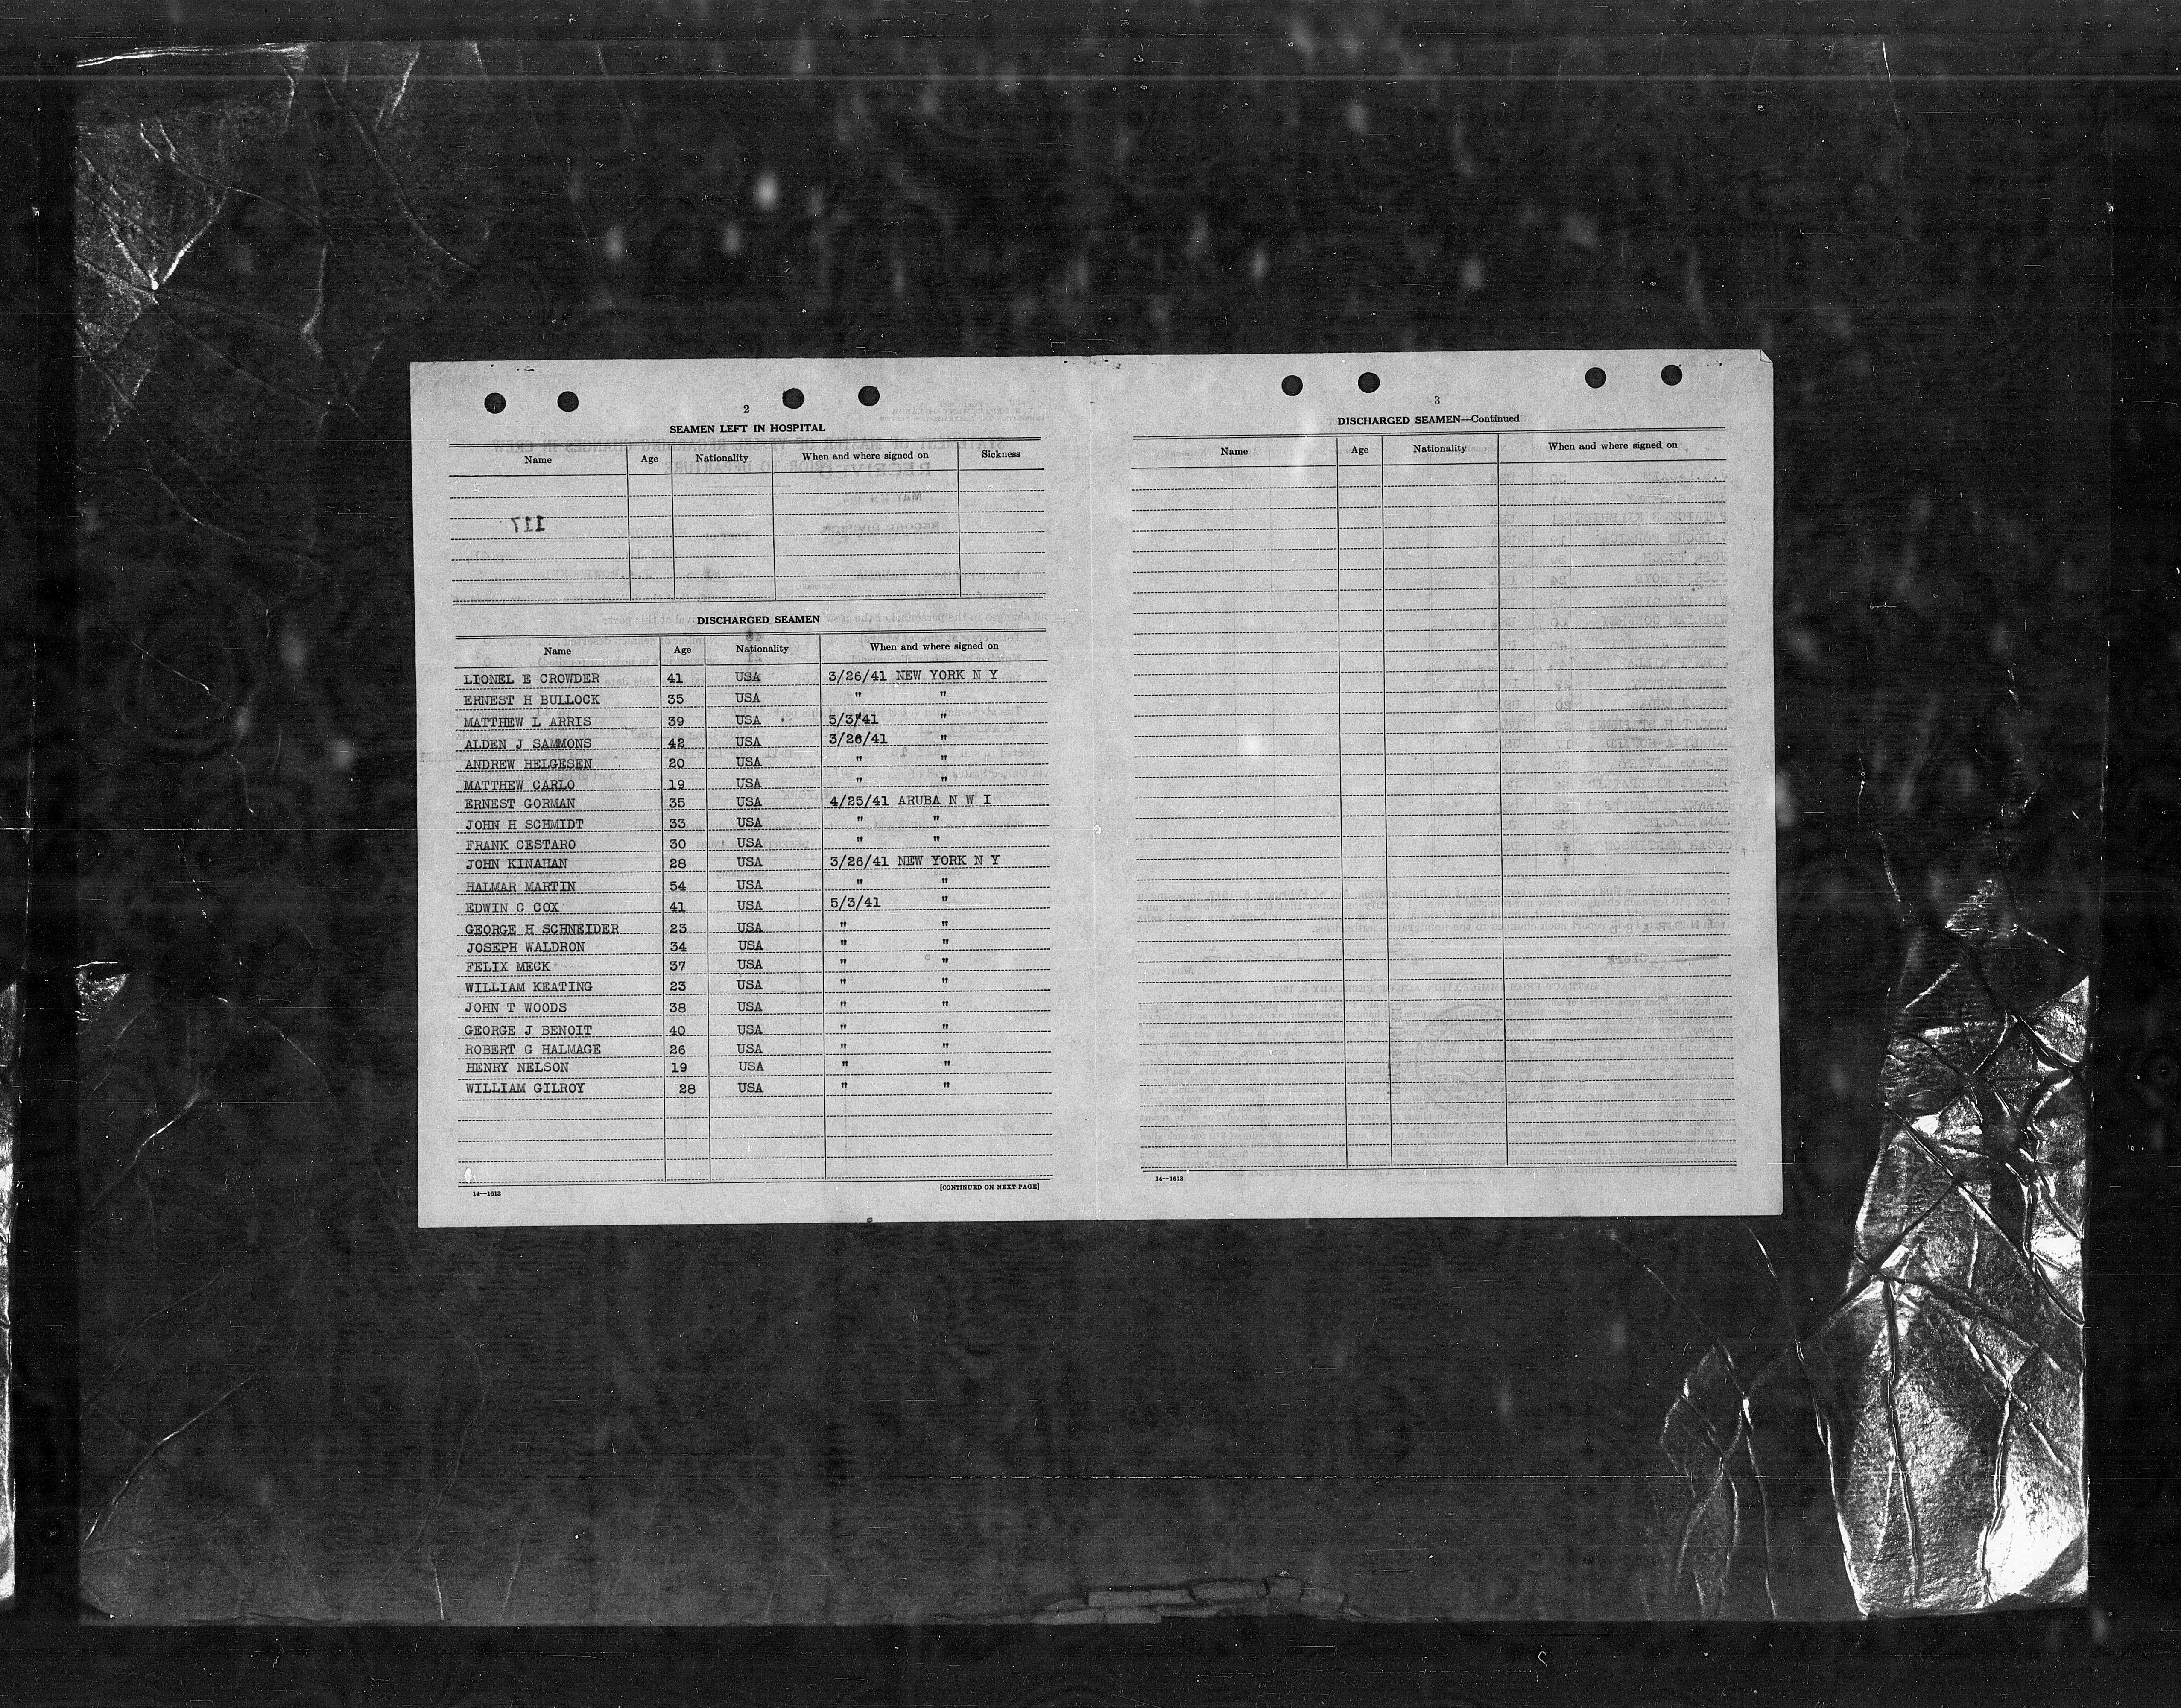 2
SEAMEN LEFT IN HOSPITAL
Name Age Nationality When and where signed on Sickness
117
DISCHARGED SEAMEN
Name Age Nationality When and where signed on
LIONEL E CROWDER 41 USA 3/26/41 NEW YORK N Y
ERNEST H BULLOCK 35 USA " "
MATTHEW L ARRIS 39 USA 5/3/41 "
ALDEN J SAMMONS 42 USA 3/26/41 "
ANDREW HELGESEN 20 USA " "
MATTHEW CARLO 19 USA " "
ERNEST GORMAN 35 USA 4/25/41 ARUBA N W I
JOHN H SCHMIDT 33 USA " "
FRANK CESTARO 30 USA " "
JOHN KINAHAN 28 USA 3/26/41 NEW YORK N Y
HALMAR MARTIN 54 USA " "
EDWIN C COX 41 USA 5/3/41 "
GEORGE H SCHNEIDER 23 USA " "
JOSEPH WALDRON 34 USA " "
FELIX MECK 37 USA " "
WILLIAM KEATING 23 USA " "
JOHN T WOODS 38 USA " "
GEORGE J BENOIT 40 USA " "
ROBERT G HALMAGE 26 USA " "
HENRY NELSON 19 USA " "
WILLIAM GILROY 28 USA " "
14—1613 [CONTINUED ON NEXT PAGE]
3
DISCHARGED SEAMEN—Continued
Name Age Nationality When and where signed on
14—1613